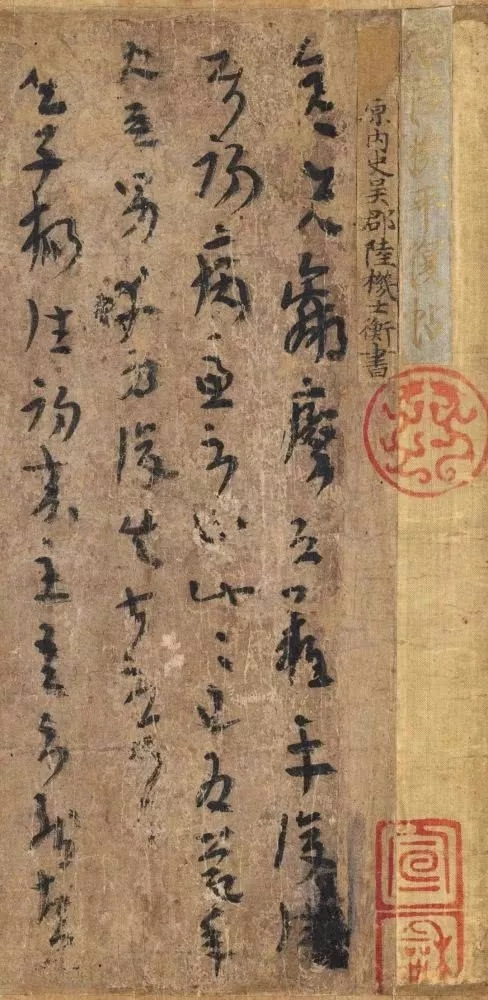 晉陸機平復帖
原內史吳郡陸機士衡書
彥先羸瘵恐難平復往
屬初病慮不止此〻已為慶承
使唯男幸為復失前憂耳
吳子楊往初來主吾不能盡
宣和